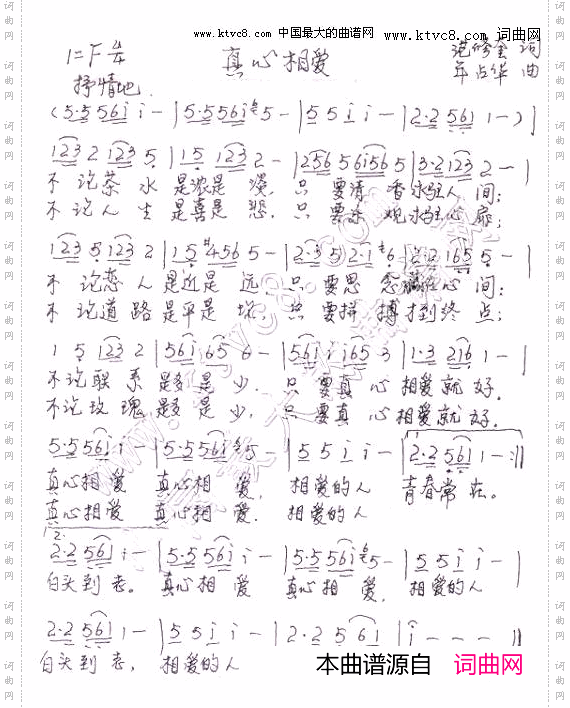 www.ktvc8.com 中国最大的曲谱网 www.ktvc8.com 词曲网
1=F 4/4 真心相爱 词
抒情地 曲
(5·5 5 6 i i - | 5·5 5 6 i 5 - | 5 5 i i - | 2·2 5 6 1 1 - ) |
1 2 3 2 1 2 3 5 | 1 5 1 2 3 2 - | 2 5 6 5 6 i 5 6 5 | 3·2 1 2 3 2 - |
不论茶水是浓是淡,只要清香永驻人间;
不论人生是喜是悲,只要乐观永驻心扉;
1 2 3 5 1 2 3 2 | 1 5 #4 5 6 5 - | 2·3 5 2·1 6 | 2·2 1 6 5 5 - |
不论恋人是近是远,只要思念藏在心间;
不论道路是平是坑,只要拼搏才到终点;
1 5 1 2 3 2 | 5 6 i 6 5 6 - | 5 6 i i i 6 5 3 | 1·3 2 1 6 1 - |
不论联系是多是少,只要真心相爱就好.
不论玫瑰是多是少,只要真心相爱就好.
5·5 5 6 i i - | 5·5 5 6 i 5 - | 5 5 i i - | 2·2 5 6 1 1 - :||
真心相爱 真心相爱, 相爱的人 青春常在。
真心相爱 真心相爱. 相爱的人
2.
2·2 5 6 1 1 - | 5·5 5 6 i i - | 5·5 5 6 i 5 - | 5 5 i i - |
白头到老。真心相爱 真心相爱, 相爱的人
2·2 5 6 1 1 - | 5 5 i i - | 2·2 5 6 1 | i - - - ||
白头到老, 相爱的人
本曲谱源自 词曲网